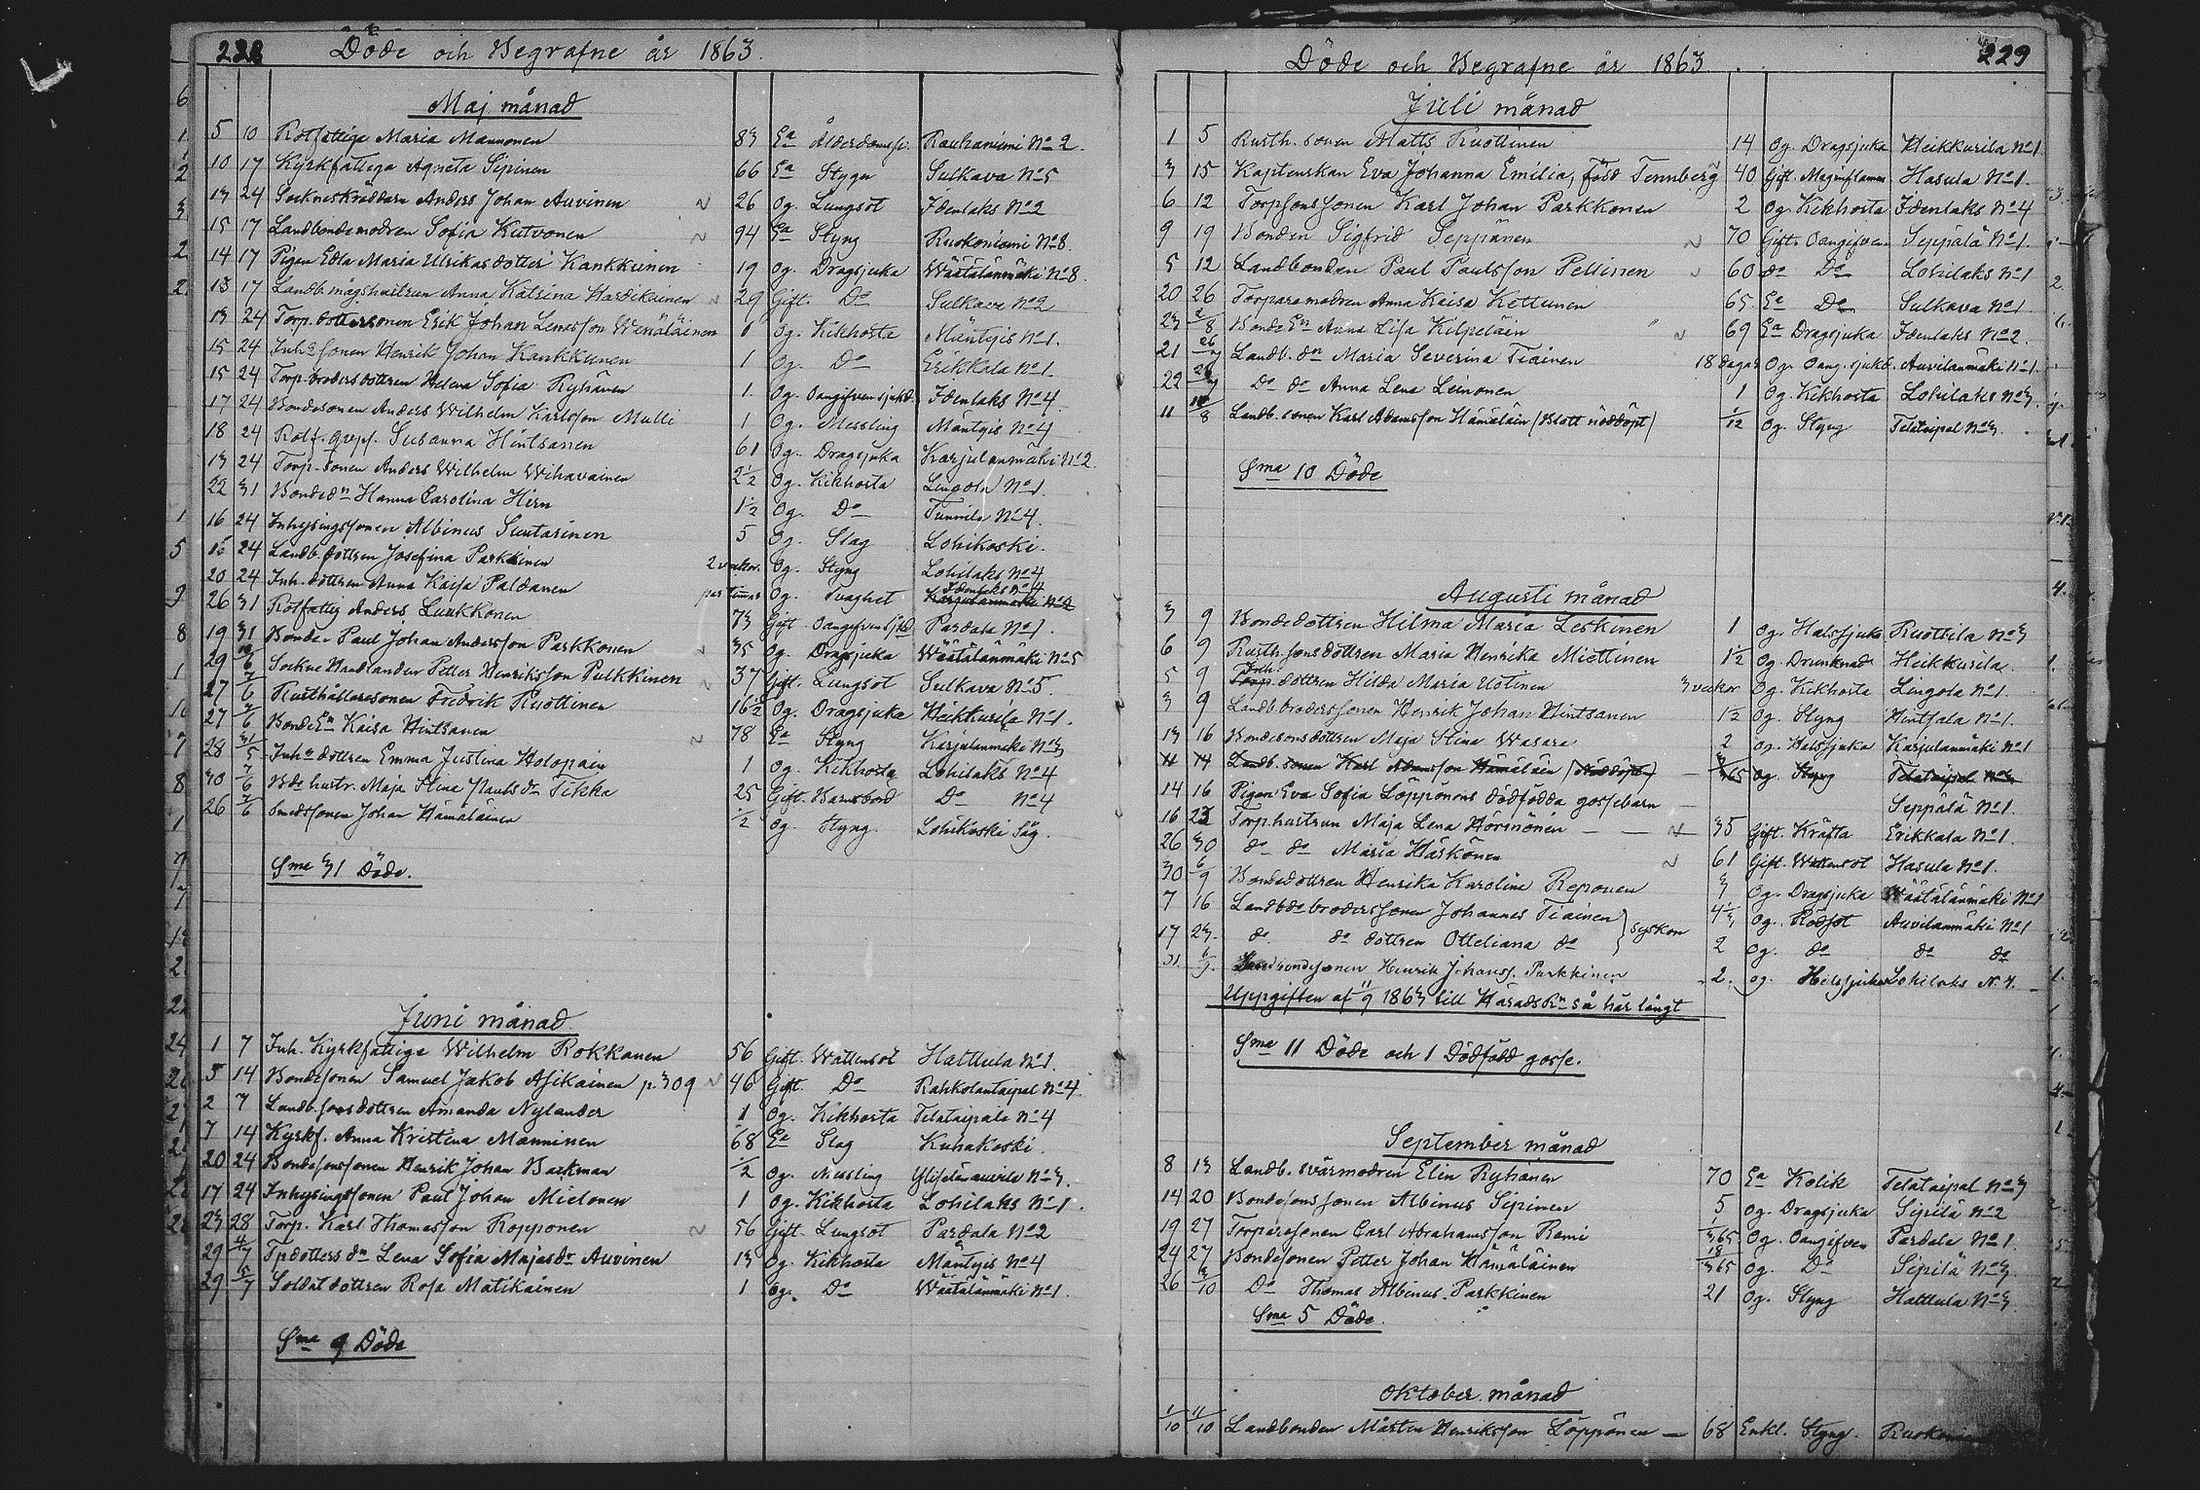 228 Döde och Begrafne år 1863.
Maj månad
5 10 Rotfattiga Maria Mannonen 83 Ea Ålderdomssv. Rauhaniemi No 2.
10 17 Kyrkfattiga Agneta Sipinen 66 Ea Styng Sulkava No 5
13 24 Sockneskräddarn Anders Johan Auvinen 26 Og. Lungsot Idenlaks No 2
15 17 Landbondemodren Sofia Kutvonen 94 Ea Styng Ruokoniemi No 8.
14 17 Pigan Edla Maria Ulrikasdotter Kankkunen 19 Og. Dragsjuka Väätälänmäki No 8.
13 17 Landb. mågshustrun Anna Katrina Hardikainen 29 Gift. Do Sulkava No 2
13 24 Torp. dottersonen Erik Johan Lenasson Wenäläinen 1 Og. Kikhosta Mäntyis No 1.
15 24 Inhs sonen Henrik Johan Kankkunen 1 Og. Do Erikkala No 1
15 24 Torp. brodersdottren Helena Sofia Ryhänen 1. Og. Oangifven sjukd. Idenlaks No 4
17 24 Bondesonen Anders Wilhelm Karlsson Mulli 1 Og. Messling Mäntyis No 4
18 24 Rotf. qvpf. Susanna Hintsanen 61 Og. Dragsjuka Karjulanmäki No 2.
13 24 Torp. sonen Anders Wilhelm Wihavainen 2 1/2 Og. Kikhosta Lingola No 1.
22 31 Bonde dn Hanna Carolina Hirn 1 1/2 Og. Do Tunnila No 4.
16 24 Inhysingssonen Albinus Suutarinen 5 Og. Slag Lohikoski.
16 24 Landb. dottren Josefina Parkkinen 2 veckor. Og. Styng Lohilaks No 4
20 24 Inh. dottren Anna Kaisa Paldanen par timmar Og. Svaghet Idenlaks No 4 Karjulanmäki No 2
26 31 Rotfattig Anders Luukkonen 73 Gift Oangifven sjkd Pardala No 1.
19 31 Bonden Paul Johan Andersson Parkkonen 35 Og. Dragsjuka Väätälänmäki No 5
29 10/6 Petter Henriksson Pulkkinen 37 Gift. Lungsot Sulkava No 5.
27 7/6 Rusthållaresonen Fredrik Ruottinen 16 1/2 Og. Dragsjuka Heikkurila No 1.
27 7/6 Bonde En Kaisa Hintsanen 78 Ea Styng Karjulanmäki No 3
28 31/5 Inhs dottren Emma Justina Holopain 1 Og. Kikhosta Lohilaks No 4
30 7/6 Bde hustr. Maja Stina Paulsdr Tikka 25 Gift. Barnsbörd Do No 4
26 7/6 Smedssonen Johan Hämäläinen 1/2 Og. Styng. Lohikoski Såg.
Sma 31 Döde.
Juni månad
1 7 Inh. Kyrkfattiga Wilhelm Rokkanen 56 Gift. Wattensot Hattula No 1.
5 14 Bondesonen Samuel Jakob Asikainen p. 309 46 Gift. Do Rahkolantaipal No 4.
2 7 Landb. sonsdottren Amanda Nylander 1 Og. Kikhosta Telataipale No 4
7 14 Kyrkf. Anna Kristina Manninen 68 Ea Slag Kuhakoski.
20 24 Bondesonssonen Henrik Johan Backman 1/2 Og. Messling No 3.
17 24 Inhysingssonen Paul Johan Mielonen 1 Og. Kikhosta Lohilaks No 1.
23 28 Torp. Karl Thomasson Ropponen 56 Gift. Lungsot Pardala No 2
29 4/7 Tpdotters dn Lena Sofia Majasdr Auvinen 13 Og. Kikhosta Mäntyis No 4
29 5/7 Soldatdottren Rosa Matikainen 1 Og. Do Väätälänmäki No 1.
Sma 9 Döde
Döde och Begrafne år 1863. 229
Juli månad
1 5 Rusth. sonen Matts Ruottinen 14 Og. Dragsjuka Heikkurila No 1
3 15 Kaptenskan Eva Johanna Emilia, född Tennberg 40 Gift. Maginflamm Hasula No 1.
6 12 Torpsonssonen Karl Johan Parkkonen 2 Og. Kikhosta Idenlaks No 4
9 19 Bonden Sigfrid Seppänen 70 Gift Oangifven Seppälä No 1.
5 12 Landbonden Paul Paulsson Pellinen 60 do Do Lohilaks No 1
20 26 Torparemodren Anna Kaisa Kettunen 65 Ea Do Sulkava No 1.
23 2/8 Bonde En Anna Lisa Kilpeläin 69 Ea Dragsjuka Idenlaks No 2.
21 26/7 Landb. dn Maria Severina Tiainen 18 dagar Og. Oang. sjukd. Auvilanmäki No 1.
22 26/7 Do do Anna Lena Leinonen 1 Og. Kikhosta Lohilaks No 3.
11 16/8 Landb. sonen Karl Adamsson Hämäläin (Blott nöddöpt) 1/12 Og. Styng Telataipal No 3.
Sma 10 Döde
Augusti månad
3 9 Bondedottren Hilma Maria Leskinen 1 Og. Halssjuka Ruottila No 3
6 9 Rusth. sonsdottren Maria Henrika Miettinen 1 1/2 Og. Drunknade Heikkurila.
5 9 Inh. Torp. dottren Hilda Maria Uotinen 3 veckor Og. Kikhosta Lingola No 1.
3 9 Landb. broderssonen Henrik Johan Hintsanen 1 1/2 Og. Styng Hintsala No 1.
13 16 Bondesonsdottren Maja Stina Wasara 2 Og. Halssjuka Karjulanmäki No 1
11 14 Landb. sonen Karl Adamsson Hämäläin (Nöddöpt) Og. Styng Telataipal No 3
14 16 Pigan Eva Sofia Löppönens dödfödda gossebarn Seppälä No 1.
16 23 Torp. hustrun Maja Lena Hörmönen 35 Gift. Kräfta Erikkala No 1.
26 30 do do Maria Härkönen 61 Gift. Wattensot Hasula No 1.
30 6/9 Bondedottren Henrika Karolina Reponen 3 Og. Dragsjuka Väätälänmäki No 1
7 16 Landbdebroderssonen Johannes Tiainen 4 1/3 Og. Rödsot Auvilanmäki No 1
17 23. do do dottren Otteliana do } syskon 2 Og. do do do
31. 6/9. Landbondesonen Henrik Johans. Parkkinen 2. Og. Halssjuka Lohilaks N. 4.
Uppgiften af 11/9 1863 till Häradskn så här långt
Sma 11 Döde och 1 Dödfödd gosse.
September månad
8 13 Landb. svärmodren Elin Ryhänen 70 Ea Kolik Telataipal No 3
14 20 Bondesonssonen Albinus Sipinen 5 Og. Dragsjuka Sipilä No 2
19 27 Torparesonen Carl Abrahamsson Remi 1/365 Og. Oangifven Pardala No 1.
24 27 Bondesonen Petter Johan Hämäläinen 18/365 Og. Do Sipilä No 3
26 3/10 Do Thomas Albinus. Parkkinen 21 Og. Styng Hattula No 3
Sma 5 Döde.
Oktober månad
1/10 11/10 Landbonden Mårten Henriksson Löppönen 68 Enkl. Styng.